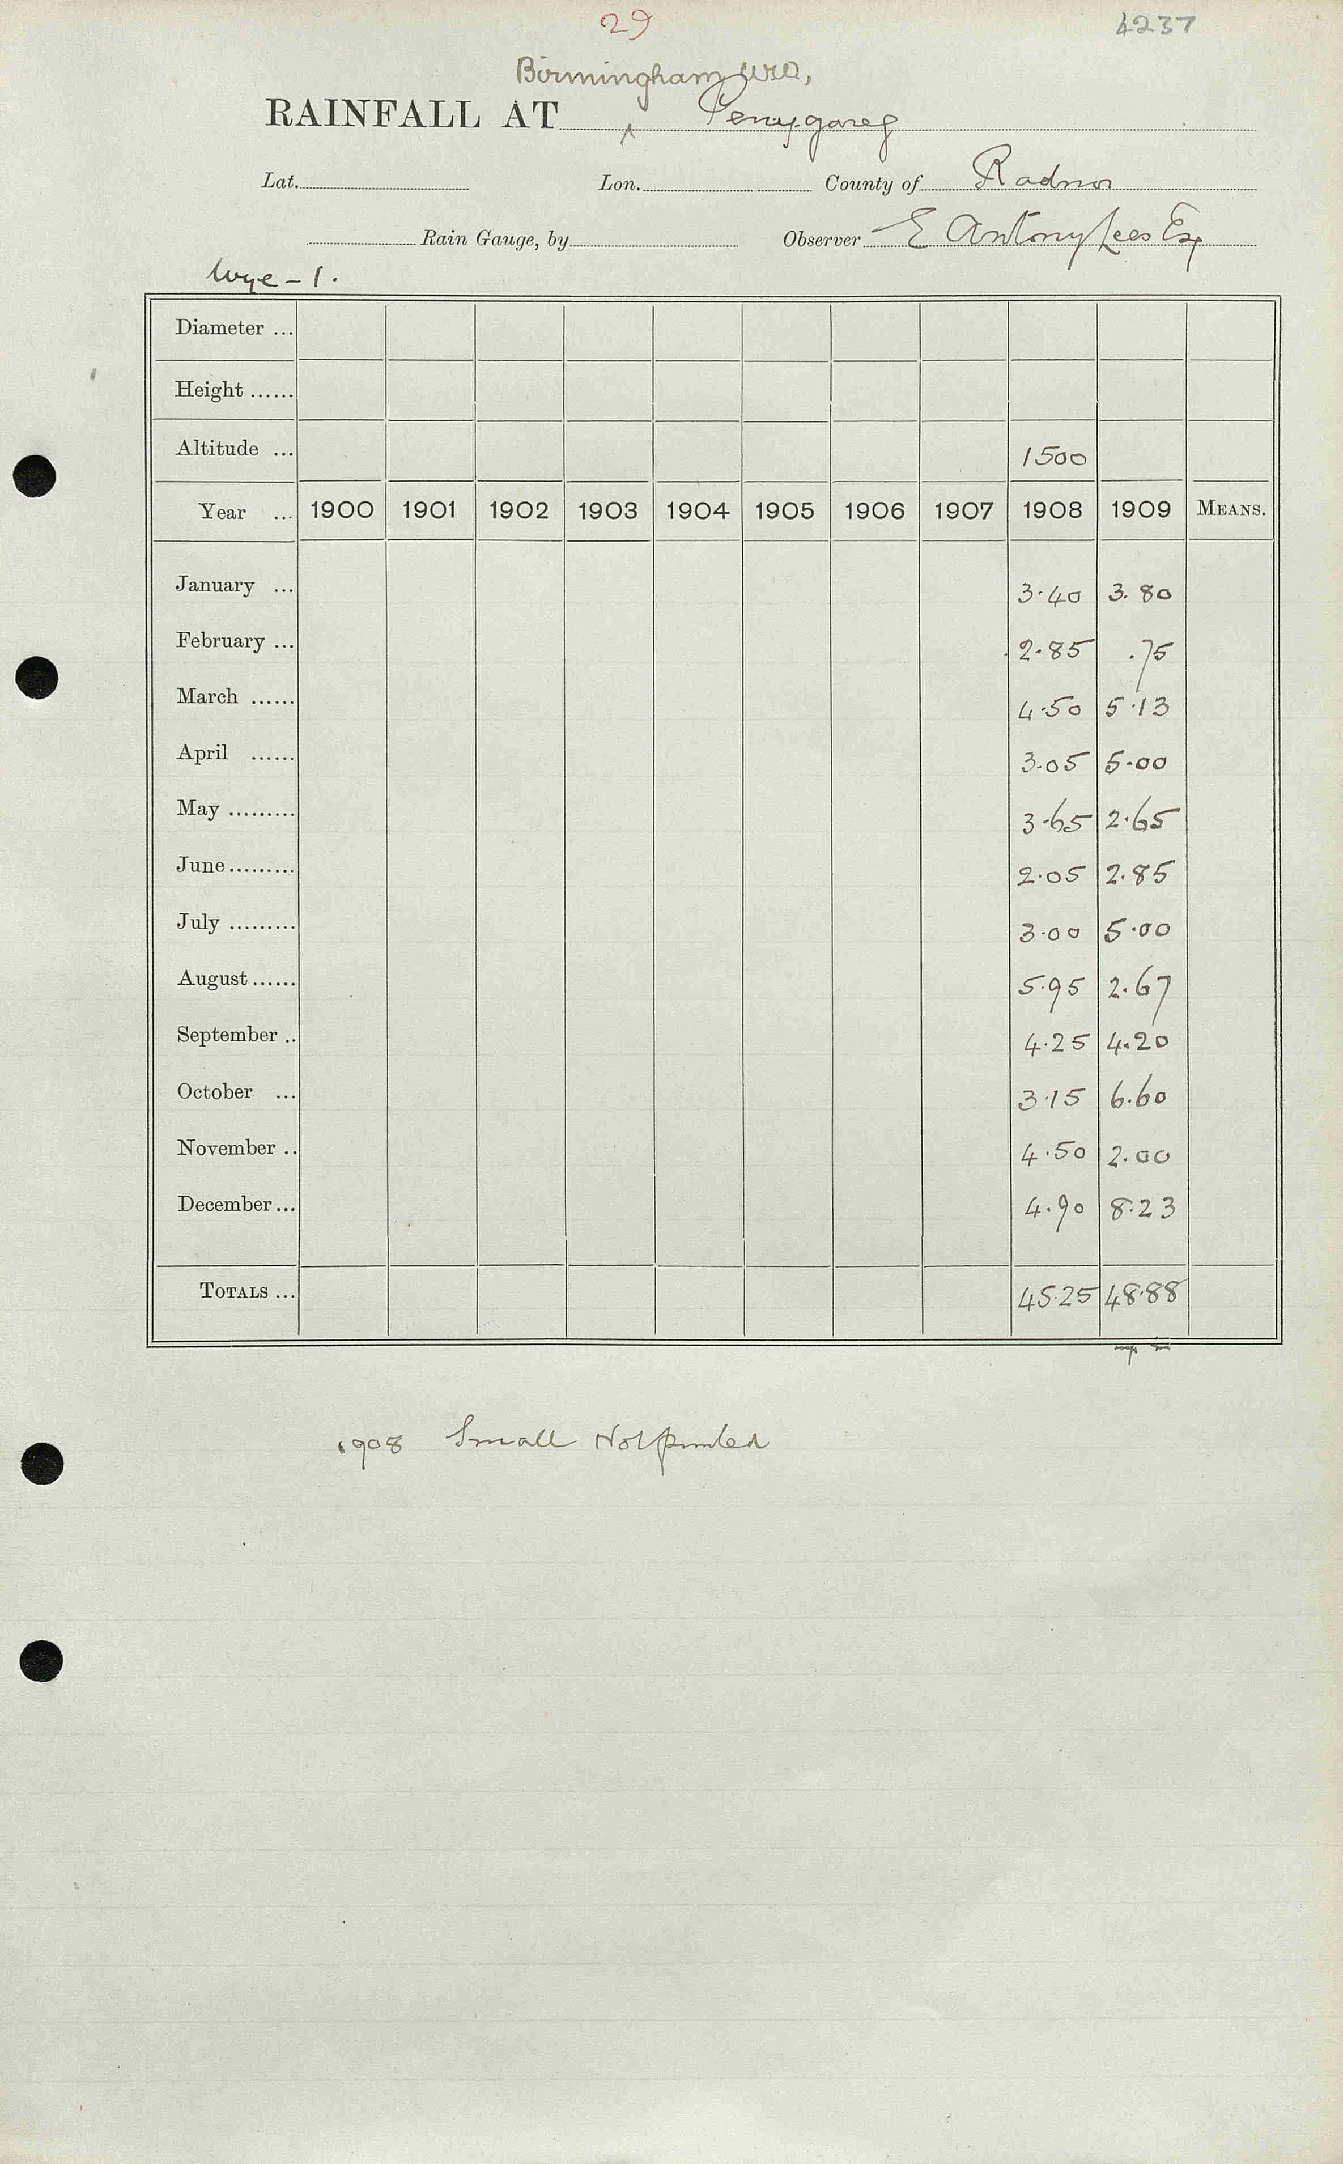 29 4237
Birmingham WW,
RAINFALL AT Penygareg
Lat. Lon. County of Radnor
Rain Gauge, by Observer E Antony Lees Esq
Wye - 1.
Diameter ...
Height ......
Altitude ... 1500
Year ... 1900 1901 1902 1903 1904 1905 1906 1907 1908 1909 MEANS.
January ... 3.40 3.80
February ... 2.85 .75
March ...... 4.50 5.13
April ...... 3.05 5.00
May ......... 3.65 2.65
June ......... 2.05 2.85
July ......... 3.00 5.00
August ...... 5.95 2.67
September .. 4.25 4.20
October ... 3.15 6.60
November .. 4.50 2.00
December ... 4.90 8.23
TOTALS ... 45.25 48.88
1908 Small Not printed